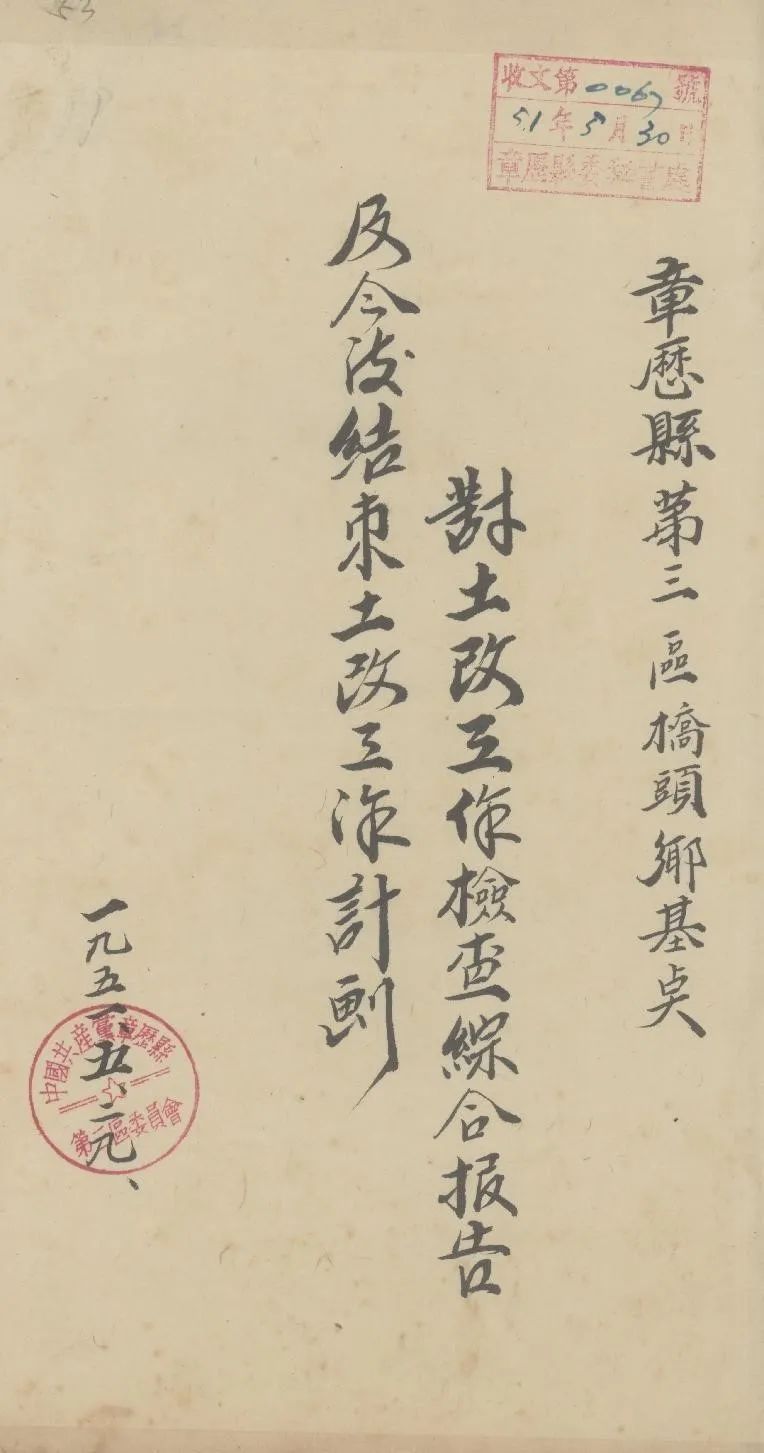 53
收文第0067號
51年5月30日
章歷縣委秘書處
章歷縣第三區橋頭鄉基点
對土改工作檢查綜合报告
及今後結束土改工作計劃
一九五一、五、二九、
中國共產黨章歷縣
第三區委員會